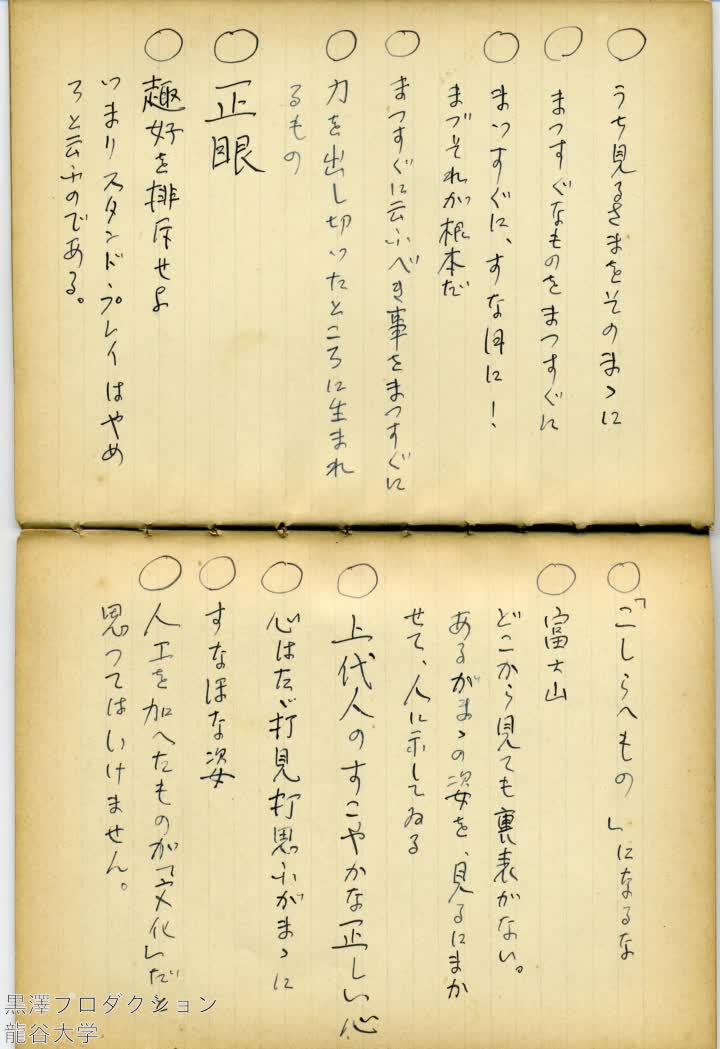 ○ うち見るさまをそのまゝに
○ まつすぐなものをまつすぐに
○ まつすぐに、すなほに!
まづそれが根本だ
○ まつすぐに云ふべき事をまつすぐに
○ 力を出し切つたところに生まれ
るもの
○ 正眼
○ 趣好を排斥せよ
つまりスタンド・プレイはやめ
ろと云ふのである。
○ 「こしらへもの」になるな
○ 富士山
どこから見ても裏表がない。
あるがまゝの姿を、見るにまか
せて、人に示してゐる
○ 上代人のすこやかな正しい心
○ 心はたゞ打見打思ふがまゝに
○ すなほな姿
○ 人工を加へたものが「文化」だと
思つてはいけません。
黒澤プロダクション
龍谷大学